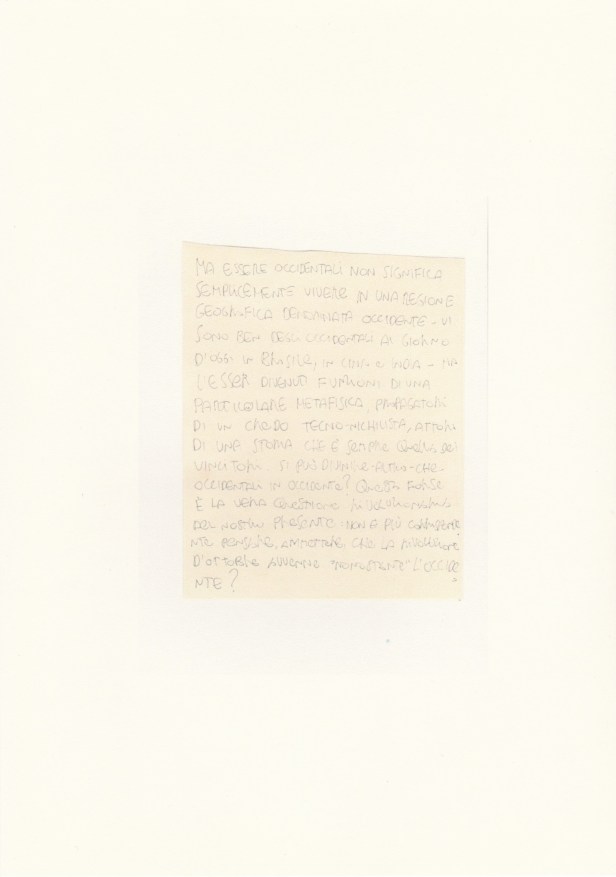 MA ESSERE OCCIDENTALI NON SIGNIFICA
SEMPLICEMENTE VIVERE IN UNA REGIONE
GEOGRAFICA DENOMINATA OCCIDENTE - VI
SONO BEN DEGLI OCCIDENTALI AL GIORNO
D'OGGI IN BRASILE, IN CINA O INDIA - MA
L'ESSER DIVENUTI FUNZIONI DI UNA
PARTICOLARE METAFISICA, PROPAGATORI
DI UN CREDO TECNO-NICHILISTA, ATTORI
DI UNA STORIA CHE È SEMPRE QUELLA DEI
VINCITORI. SI PUÒ DIVENIRE-ALTRO-CHE-
OCCIDENTALI IN OCCIDENTE? QUESTA FORSE
È LA VERA QUESTIONE RIVOLUZIONARIA
DEL NOSTRO PRESENTE. NON È PIÙ
NTE PENSARE, AMMETTERE CHE LA RIVOLUZIONE
D'OTTOBRE AVVENNE "NONOSTANTE" L'OCCIDE
NTE?